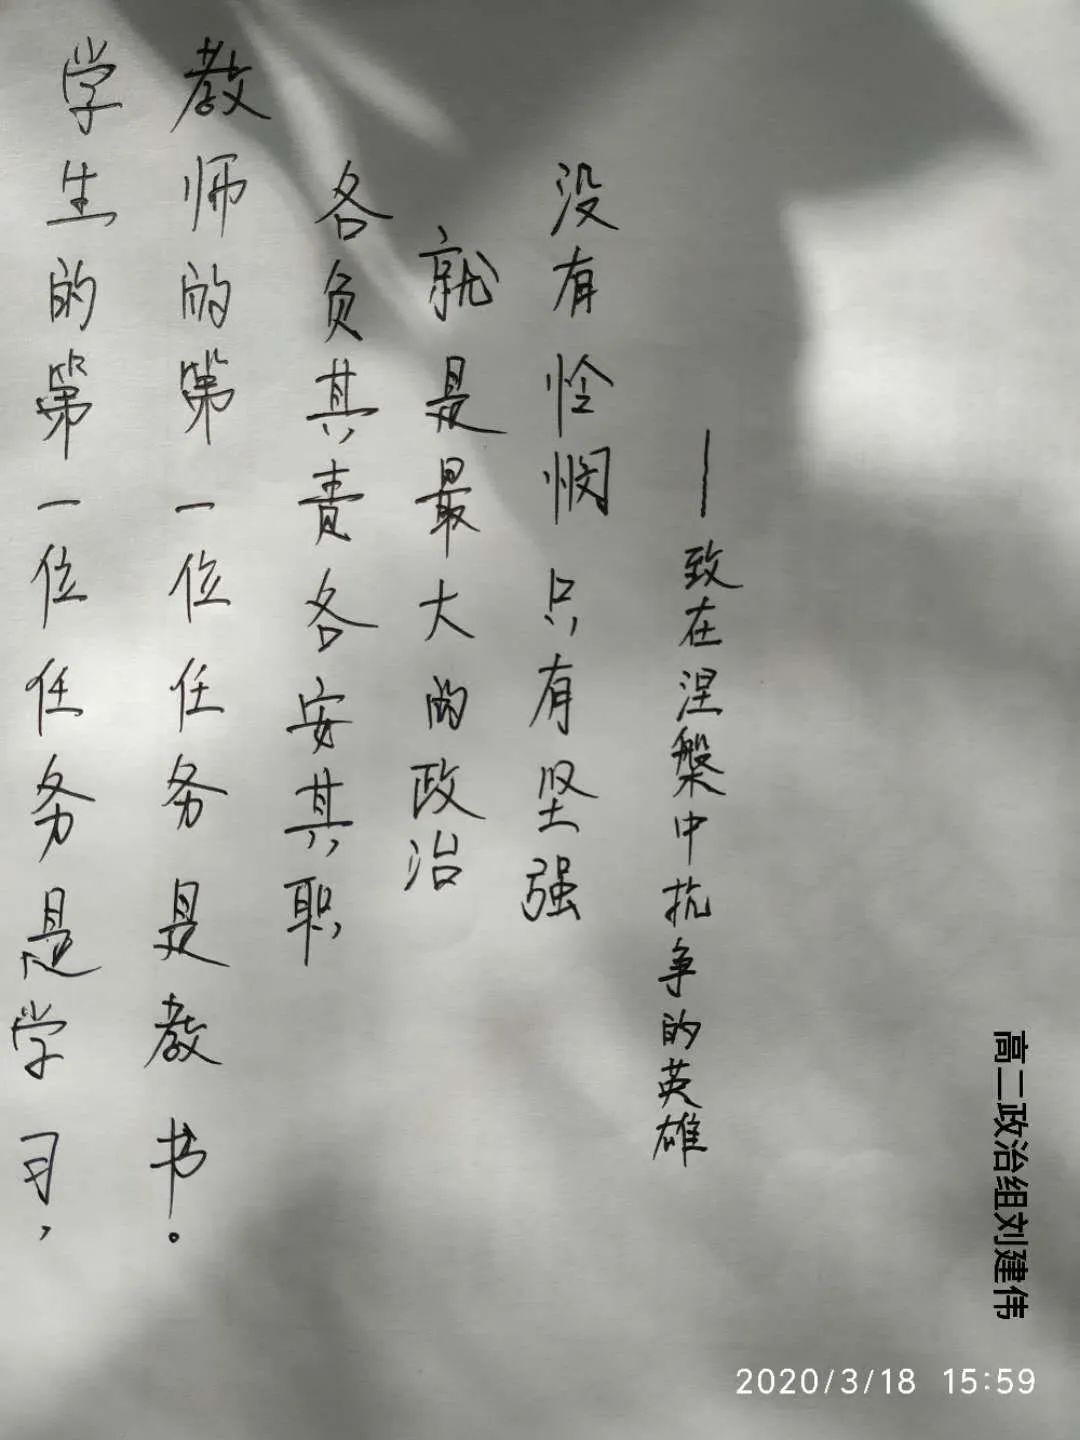 学生的第一位任务是学习，
教师的第一位任务是教书。
各负其责各安其职
就是最大的政治
没有怜悯只有坚强
——致在涅槃中抗争的英雄
高二政治组刘建伟
2020/3/18 15:59